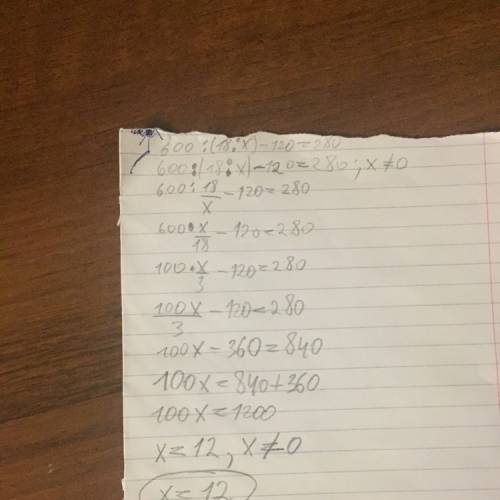 600:(18:x)-120=280
600:(18:x)-120=280;x≠0
600:18/x-120=280
600•x/18-120=280
100•x/3-120=280
100x/3-120=280
100x-360=840
100x=840+360
100x=1200
x=12,x≠0
x=12